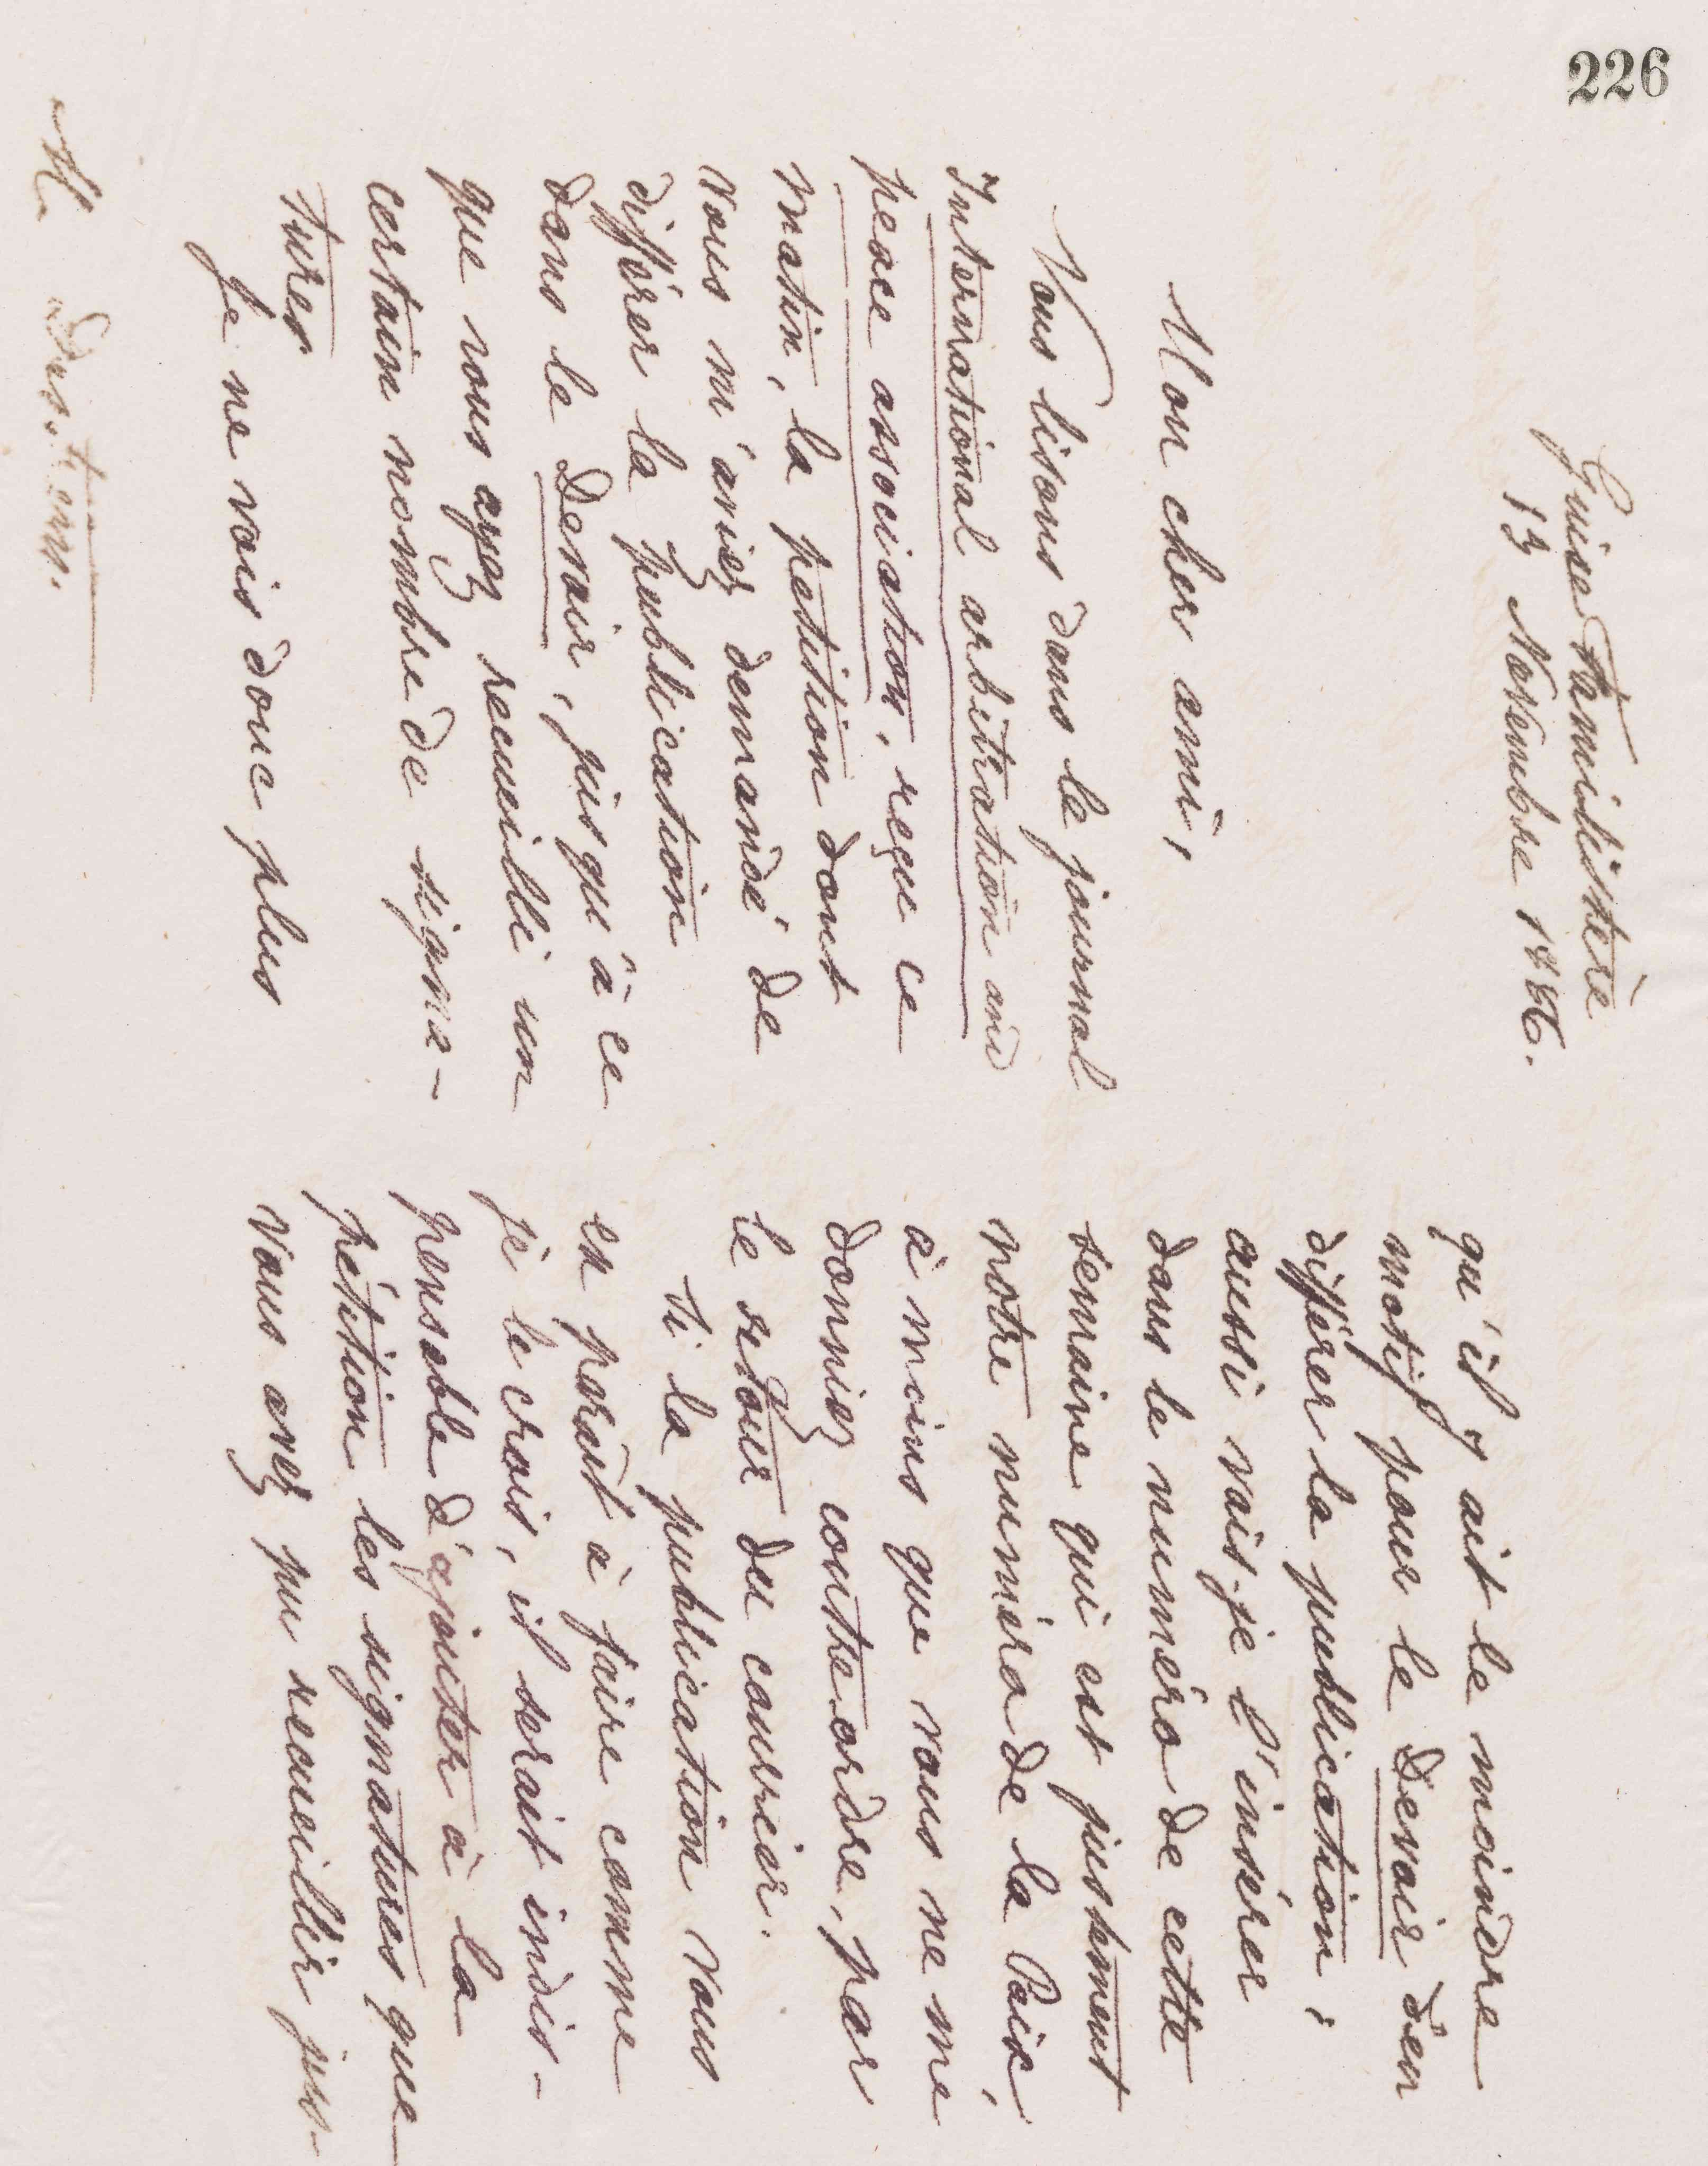 226
Guise Familistère
13 Novembre 1886.
Mon cher ami,
Nous lisons dans le journal
International arbitration and
peace association, reçu ce
matin, la pétition dont
vous m'aviez demandé de
différer la publication
dans le Devoir, jusqu'à ce
que vous ayez recueilli un
certain nombre de signa-
tures
Je ne vois donc plus
qu'il y ait le moindre
motif pour le Devoir d'en
différer la publication ;
aussi vais-je l'insérer
dans le numéro de cette
semaine qui est justement
notre numéro de la Paix,
à moins que vous ne me
donniez contre-ordre, par
le retour du courrier.
Si la publication vous
en paraît à faire comme
je le crois, il serait indis-
pensable d'ajouter à la
pétition les signatures que
vous avez pu recueillir jus-
M.